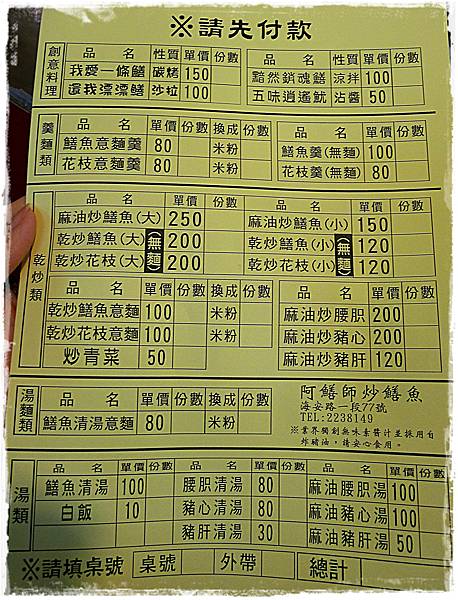 ※請先付款
創意料理
品名 性質 單價 份數 品名 性質 單價 份數
我愛一條鱔 碳烤 150 黯然銷魂鱔 涼拌 100
還我漂漂鱔 沙拉 100 五味逍遙魷 沾醬 50
羹麵類
品名 單價 份數 換成 份數 品名 單價 份數
鱔魚意麵羹 80 米粉 鱔魚羹(無麵) 100
花枝意麵羹 80 米粉 花枝羹(無麵) 80
乾炒類
品名 單價 份數 品名 單價 份數
麻油炒鱔魚(大) 250 麻油炒鱔魚(小) 150
乾炒鱔魚(大) (無麵) 200 乾炒鱔魚(小) (無麵) 120
乾炒花枝(大) 200 乾炒花枝(小) 120
品名 單價 份數 換成 份數 品名 單價 份數
乾炒鱔魚意麵 100 米粉 麻油炒腰胑 200
乾炒花枝意麵 100 米粉 麻油炒豬心 200
炒青菜 50 麻油炒豬肝 120
湯麵類
品名 單價 份數 換成 份數
鱔魚清湯意麵 80 米粉
阿鱔師炒鱔魚
海安路一段77號
TEL:2238149
※業界獨創無味素醬汁並採用自
炸豬油,請安心食用。
湯類
品名 單價 份數 品名 單價 份數 品名 單價 份數
鱔魚清湯 100 腰胑清湯 80 麻油腰胑湯 100
白飯 10 豬心清湯 80 麻油豬心湯 100
豬肝清湯 30 麻油豬肝湯 50
※請填桌號 桌號 外帶 總計